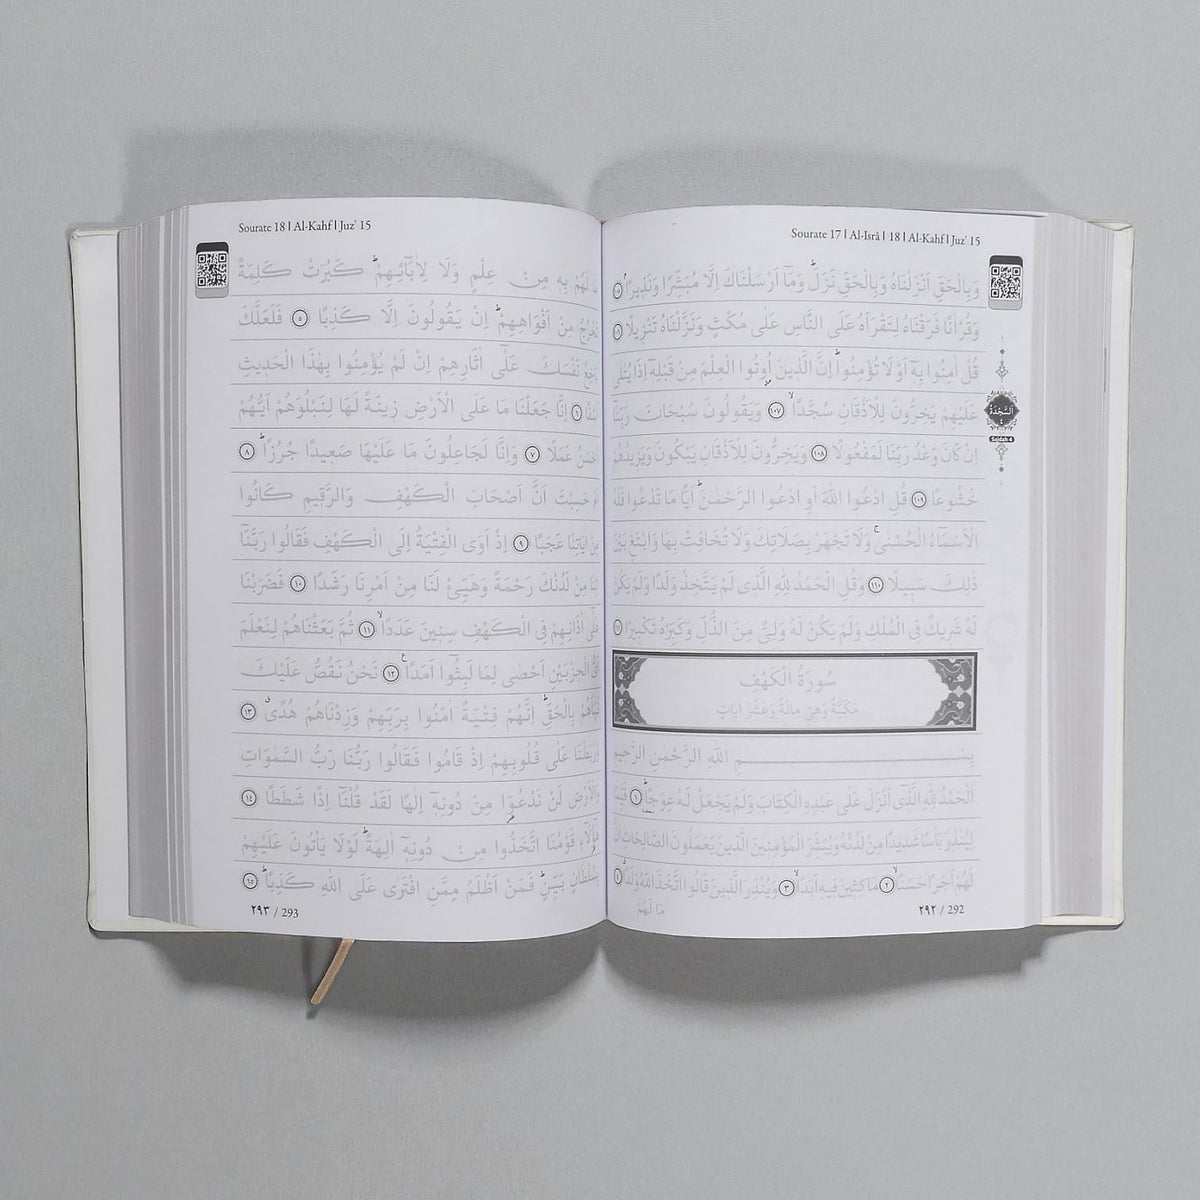 Sourate 17 | Al-Isrâ | 18 | Al-Kahf | Juz' 15
وَبِالْحَقِّ اَنْزَلْنَاهُ وَبِالْحَقِّ نَزَلَۜ وَمَٓا اَرْسَلْنَاكَ اِلَّا مُبَشِّرًا وَنَذٖيرًاۢ ١٠٥
وَقُرْاٰنًا فَرَقْنَاهُ لِتَقْرَاَهُ عَلَى النَّاسِ عَلٰى مُكْثٍ وَنَزَّلْنَاهُ تَنْزٖيلًا ١٠٦
قُلْ اٰمِنُوا بِهٖٓ اَوْ لَا تُؤْمِنُواۜ اِنَّ الَّذٖينَ اُوتُوا الْعِلْمَ مِنْ قَبْلِهٖٓ اِذَا يُتْلٰى
عَلَيْهِمْ يَخِرُّونَ لِلْاَذْقَانِ سُجَّدًاۙ ١٠٧ وَيَقُولُونَ سُبْحَانَ رَبِّنَٓا
اِنْ كَانَ وَعْدُ رَبِّنَا لَمَفْعُولًا ١٠٨ وَيَخِرُّونَ لِلْاَذْقَانِ يَبْكُونَ وَيَزٖيدُهُمْ
خُشُوعًا ١٠٩ قُلِ ادْعُوا اللّٰهَ اَوِ ادْعُوا الرَّحْمٰنَۜ اَيًّا مَا تَدْعُوا فَلَهُ
الْاَسْمَٓاءُ الْحُسْنٰىۚ وَلَا تَجْهَرْ بِصَلَاتِكَ وَلَا تُخَافِتْ بِهَا وَابْتَغِ بَيْنَ
ذٰلِكَ سَبٖيلًا ١١٠ وَقُلِ الْحَمْدُ لِلّٰهِ الَّذٖى لَمْ يَتَّخِذْ وَلَدًا وَلَمْ يَكُنْ
لَهُ شَرٖيكٌ فِى الْمُلْكِ وَلَمْ يَكُنْ لَهُ وَلِىٌّ مِنَ الذُّلِّ وَكَبِّرْهُ تَكْبٖيرًا ١١١
سُورَةُ الْكَهْفِ
مَكِّيَّةٌ وَهِىَ مِائَةٌ وَعَشْرُ اٰيَاتٍ
بِسْمِ اللّٰهِ الرَّحْمٰنِ الرَّحٖيمِ
اَلْحَمْدُ لِلّٰهِ الَّذٖٓى اَنْزَلَ عَلٰى عَبْدِهِ الْكِتَابَ وَلَمْ يَجْعَلْ لَهُ عِوَجًاۜ ١ قَيِّمًا
لِيُنْذِرَ بَاْسًا شَدٖيدًا مِنْ لَدُنْهُ وَيُبَشِّرَ الْمُؤْمِنٖينَ الَّذٖينَ يَعْمَلُونَ الصَّالِحَاتِ اَنَّ
لَهُمْ اَجْرًا حَسَنًاۙ ٢ مَاكِثٖينَ فٖيهِ اَبَدًاۙ ٣ وَيُنْذِرَ الَّذٖينَ قَالُوا اتَّخَذَ اللّٰهُ وَلَدًاۗ ٤
مَا لَهُمْ
٢٩٢ / 292
اَلسَّجْدَةُ
٤
Sajdah 4
Sourate 18 | Al-Kahf | Juz' 15
مَا لَهُمْ بِهٖ مِنْ عِلْمٍ وَلَا لِاٰبَٓائِهِمْۜ كَبُرَتْ كَلِمَةً
تَخْرُجُ مِنْ اَفْوَاهِهِمْۜ اِنْ يَقُولُونَ اِلَّا كَذِبًا ٥ فَلَعَلَّكَ
بَاخِعٌ نَفْسَكَ عَلٰٓى اٰثَارِهِمْ اِنْ لَمْ يُؤْمِنُوا بِهٰذَا الْحَدٖيثِ
اَسَفًا ٦ اِنَّا جَعَلْنَا مَا عَلَى الْاَرْضِ زٖينَةً لَهَا لِنَبْلُوَهُمْ اَيُّهُمْ
اَحْسَنُ عَمَلًا ٧ وَاِنَّا لَجَاعِلُونَ مَا عَلَيْهَا صَعٖيدًا جُرُزًاۜ ٨
اَمْ حَسِبْتَ اَنَّ اَصْحَابَ الْكَهْفِ وَالرَّقٖيمِ كَانُوا
مِنْ اٰيَاتِنَا عَجَبًا ٩ اِذْ اَوَى الْفِتْيَةُ اِلَى الْكَهْفِ فَقَالُوا رَبَّنَٓا
اٰتِنَا مِنْ لَدُنْكَ رَحْمَةً وَهَيِّئْ لَنَا مِنْ اَمْرِنَا رَشَدًا ١٠ فَضَرَبْنَا
عَلٰٓى اٰذَانِهِمْ فِى الْكَهْفِ سِنٖينَ عَدَدًاۙ ١١ ثُمَّ بَعَثْنَاهُمْ لِنَعْلَمَ
اَىُّ الْحِزْبَيْنِ اَحْصٰى لِمَا لَبِثُٓوا اَمَدًاۚ ١٢ نَحْنُ نَقُصُّ عَلَيْكَ
نَبَاَهُمْ بِالْحَقِّۜ اِنَّهُمْ فِتْيَةٌ اٰمَنُوا بِرَبِّهِمْ وَزِدْنَاهُمْ هُدًىۗ ١٣
وَرَبَطْنَا عَلٰى قُلُوبِهِمْ اِذْ قَامُوا فَقَالُوا رَبُّنَا رَبُّ السَّمٰوَاتِ
وَالْاَرْضِ لَنْ نَدْعُوَا۬ مِنْ دُونِهٖٓ اِلٰهًا لَقَدْ قُلْنَٓا اِذًا شَطَطًا ١٤
هٰٓؤُ۬لَٓاءِ قَوْمُنَا اتَّخَذُوا مِنْ دُونِهٖٓ اٰلِهَةًۜ لَوْلَا يَاْتُونَ عَلَيْهِمْ
بِسُلْطَانٍ بَيِّنٍۜ فَمَنْ اَظْلَمُ مِمَّنِ افْتَرٰى عَلَى اللّٰهِ كَذِبًاۜ ١٥
٢٩٣ / 293